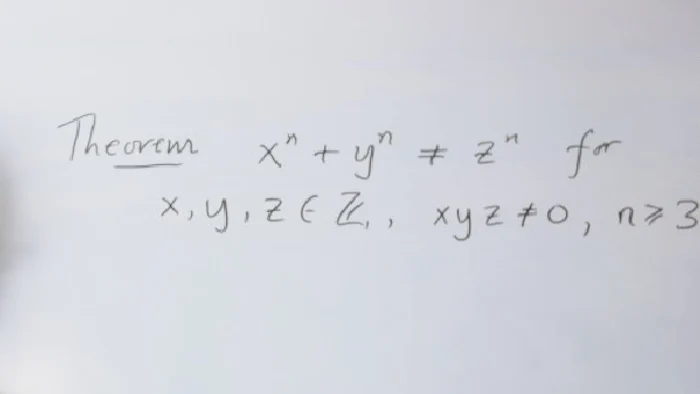 Theorem xⁿ + yⁿ ≠ zⁿ for
x, y, z ∈ ℤ, xyz ≠ 0, n ⩾ 3